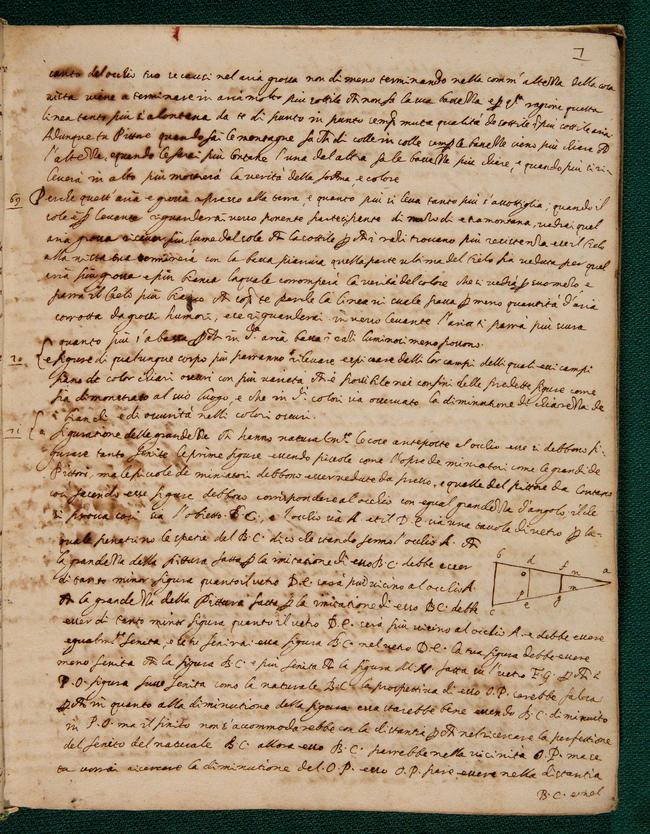 7
tanto del occhio tuo recausi nel aria grossa non di meno terminando nella com' altezza della cosa
vista viene a terminare in aria molto piu sottile
linea tanto piu s'alontana da te di punto in punto sempre muta qualità de sottile in più sottile aria
Adunque tu Pittore quando fai le montagne fa di colle in colle sempre le bassezze sieno più chiare
l'altezze, quando le farai più lontane l'una dal altra fa le bassezze più chiare, e quando più si ri-
leverà in alto più mostrerà la verità della forma e colore
69 Perche quest'aria e grossa apresso alla terra, e quanto piu si leva tanto piu s'assottiglia, quando il
sole è per levante riguarderai verso ponente partecipante di mezzo dì e tramontana, vedrai quel
aria grossa ricever piu lume dal sole la sottile li radi trovano più resistenza e se il Cielo
alla vista tua terminerà con la bassa pianura quella parte ultima del Cielo fia veduta per quel
aria più grossa e più bianca laquale corromperà la verità del colore che si vedrà suo mezo, e
parrà il Cielo più bianco te perche la linea visuale passa per meno quantità d'aria
corrotta da grossi humori, e se riguarderai in verso levante l'aria ti parrà più scura
quanto più s'abassa in detta aria bassa i radi luminosi meno passano
70 Le figure di qualunque corpo più parranno rilevare e spiccare dalli lor campi delli quali essi campi
sieno de color chiari oscuri con più varietà è possibile nei confini delle predette figure come
fia dimostrato al suo luogo, e che in detti colori sia osservato la diminutione di chiarezza de
i bianchi e di oscurità nelli colori oscuri.
71 La figuratione delle grandezze hanno naturalmente le cose anteposte al occhio essi debbono fi-
gurare tanto finite le prime figure essendo piccole come l'opre de miniatori come le grandi de
Pittori, ma le piccole de miniatori debbono esser vedute da presso, e quelle del pittore da lontano
cosi facendo esse figure debbono corrispondere al occhio con egual grandezza d'angolo, il che
si prova cosi sia l'obietto B.C., e l'occhio sia A et il D.E. sia una tavola di vetro per la-
quale penetrino le spetie del B.C. dico che stando fermo l'occhio A.
la grandezza della pittura fatta per la imitatione di esso B.C. debbe esser
di tanto minor figura quanto il vetro D.E. sarà più vicino al occhio A
la grandezza della Pittura fatta per la imitatione di esso B.C. debbe
esser di tanto minor figura quanto il vetro D.E. sarà più vicino al occhio A. e debbe essere
egualmente finita, e se tu finirai essa figura B.C. nel vetro D.E. la tua figura debbe essere
meno finita la figura B.C. e più finita la figura M.N. fatta su l'vetro F.G.
P.O. figura fusse finita como la naturale B.C. la prospettiva di esso O.P. sarebbe falsa
in quanto alla diminutione della figura essa starebbe bene essendo B.C. diminuito
in P.O. ma il finito non s'accommodarebbe con la distantia nel ricercare la perfettione
del finito del naturale B.C. allora esso B.C. parrebbe nella vicinità O.P. ma se
tu vorrai ricercare la diminutione del O.P. esso O.P. pare essere nella distantia
B.C. e nel
b d f n a
o m
p
c e g